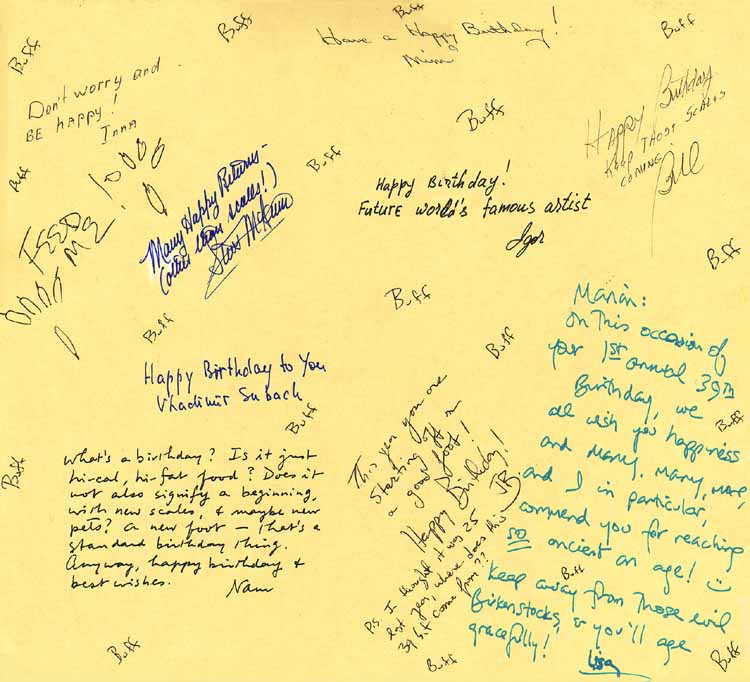 Buff
Buff
Buff
Have a Happy Birthday!
Mimi
Buff
Don't worry and
BE happy!
Inna
Happy Birthday
KEEP THOSE SCALES
COMING
Bill
Buff
Buff
Buff
FEED
ME
Many Happy Returns -
(other than scales!)
Happy Birthday!
Future world's famous artist
Igor
Buff
Buff
Buff
Buff
Happy Birthday to You
Vladimir Subach
Marián:
On This occasion of
your 1st annual 39th
Birthday, we
all wish you happiness
and many, many, more,
and I in particular,
commend you for reaching
so ancient an age!
Keep away from Those evil
Birkenstocks, & you'll age
gracefully!
Lisa
Buff
Buff
Buff
What's a birthday? Is it just
hi-cal, hi-fat food? Does it
not also signify a beginning,
with new scales, & maybe new
pets? A new foot — that's a
standard birthday thing.
Anyway, happy birthday &
best wishes.
Nam
This year you are
starting off on
a good foot!
Happy Birthday!
JB
P.S. I thought it was 25
last year, where does this
39 bit come from??
Buff
Buff
Buff
Buff